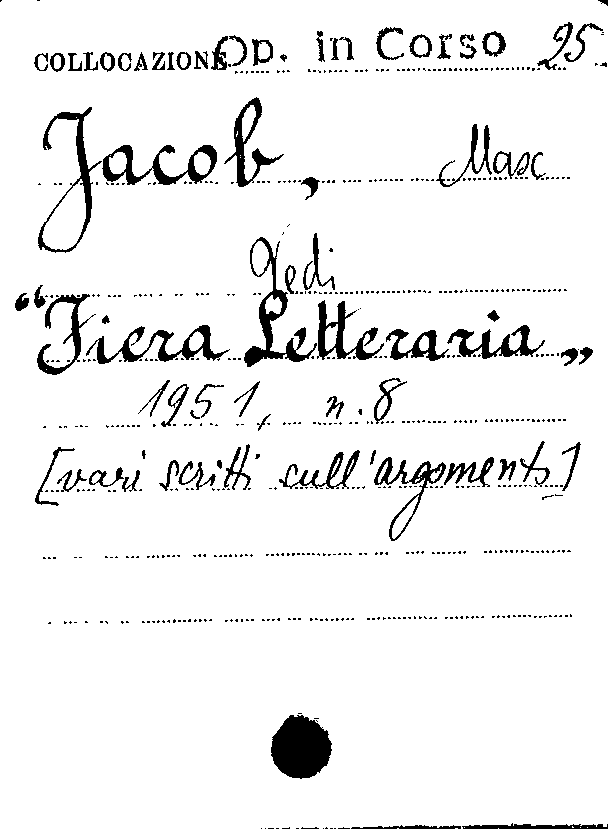 COLLOCAZIONE Op. in Corso 95
Jacob, Max
Vedi
“Fiera Letteraria„
1951, n. 8
[vari scritti sull'argomento]